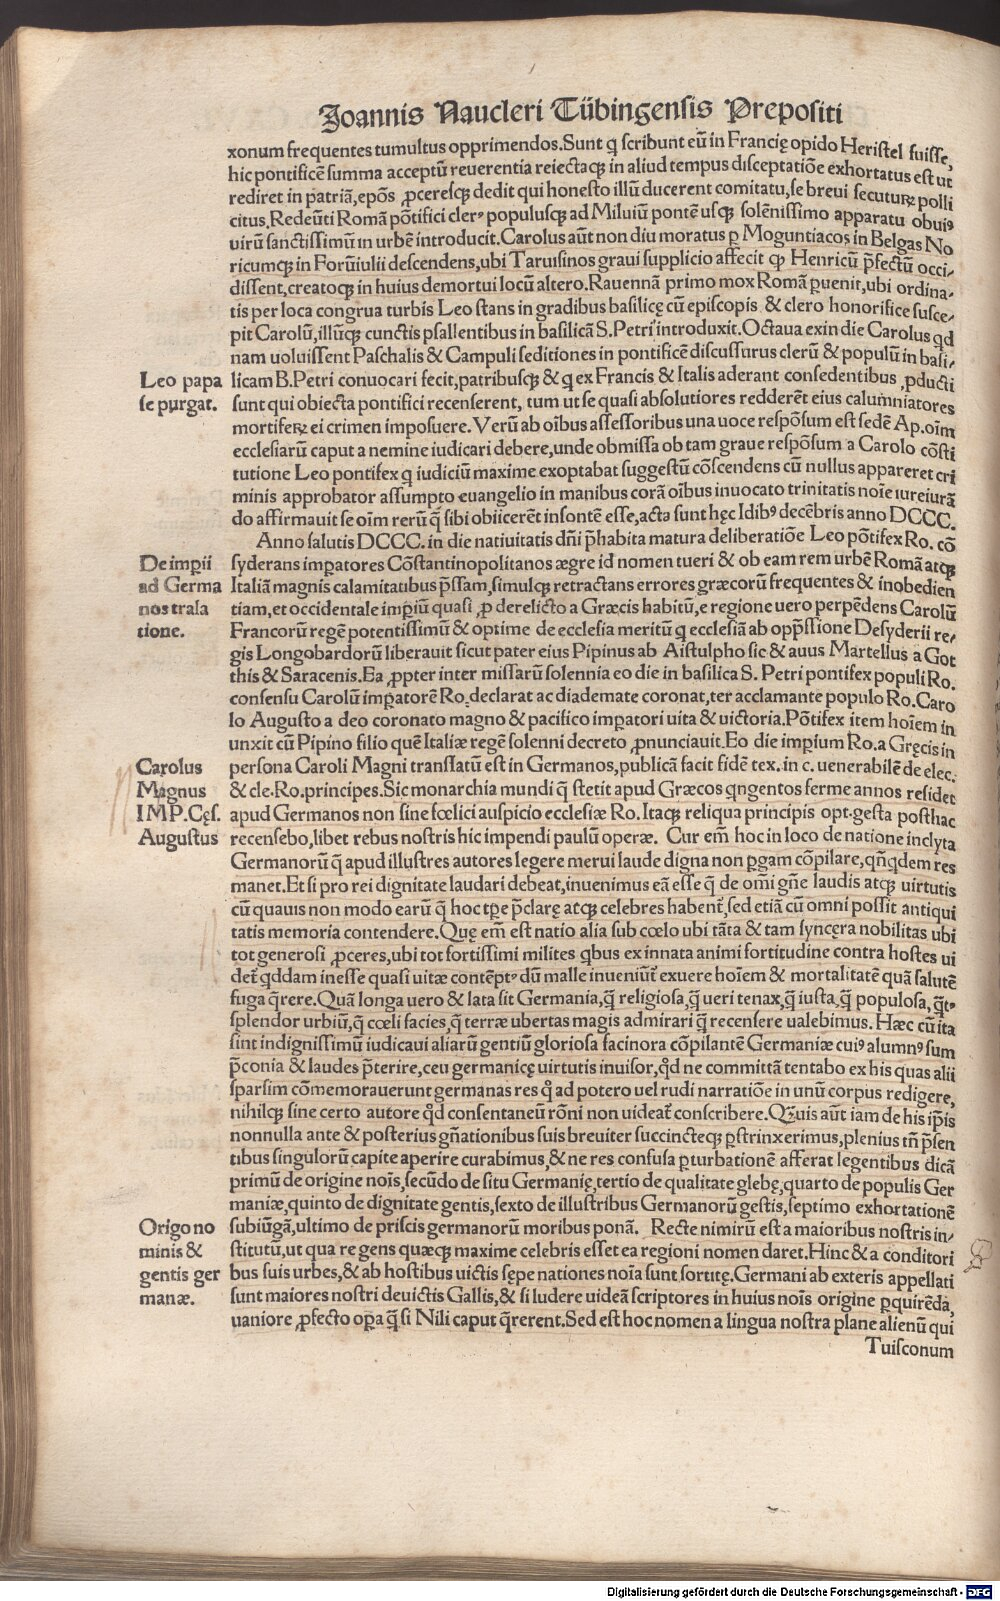 Joannis Naucleri Tübingensis Prepositi
xonum frequentes tumultus opprimendos.Sunt q̃ scribunt eũ in Francię opido Heristel fuisse,
hic pontificẽ summa acceptũ reuerentia reiectaqꝫ in aliud tempus disceptatiõe exhortatus est ut
rediret in patriã,epõs ꝓceresqꝫ dedit qui honesto illũ ducerent comitatu,se breui secuturꝝ polli
citus.Redeũti Romã põtifici clerꝰ populusqꝫ ad Miluiũ pontẽ usqꝫ solẽnissimo apparatu obuiꝰ
uirũ sanctissimũ in urbẽ introducit.Carolus aũt non diu moratus ꝑ Moguntiacos in Belgas No
ricumqꝫ in Forũiulii descendens,ubi Taruisinos graui supplicio affecit ꝙ Henricũ p̃fectũ occi-
dissent,creatoqꝫ in huius demortui locũ altero.Rauennã primo mox Romã ꝑuenit,ubi ordina-
tis per loca congrua turbis Leo stans in gradibus basilicę cũ episcopis & clero honorifice susce-
pit Carolũ,illũqꝫ cunctis psallentibus in basilicã S.Petri introduxit.Octaua exin die Carolus qd
nam uoluissent Paschalis & Campuli seditiones in pontificẽ discussurus clerũ & populũ in basi-
Leo papa licam B.Petri conuocari fecit,patribusqꝫ & q ex Francis & Italis aderant consedentibus ꝓducti
se purgat. sunt qui obiecta pontifici recenserent, tum ut se quasi absolutiores redderẽt eius calumniatores
mortiferꝝ ei crimen imposuere. Verũ ab oĩbus assessoribus una uoce respõsum est sedẽ Ap.oĩm
ecclesiarũ caput a nemine iudicari debere,unde obmissa ob tam graue respõsum a Carolo cõsti
tutione Leo pontifex q iudiciũ maxime exoptabat suggestũ cõscendens cũ nullus appareret cri
minis approbator assumpto euangelio in manibus corã oĩbus inuocato trinitatis noĩe iureiurã
do affirmauit se oĩm rerũ q̃ sibi obiicerẽt insontẽ esse,acta sunt hęc Idibꝰ decẽbris anno DCCC.
Anno salutis DCCC. in die natiuitatis dñi p̃habita matura deliberatiõe Leo põtifex Ro. cõ
De imꝑii syderans imꝑatores Cõstantinopolitanos ægre id nomen tueri & ob eam rem urbẽ Romã atqꝫ
ad Germa Italiã magnis calamitatibus p̃ssam,simulqꝫ retractans errores græcorũ frequentes & inobedien
nos trasla tiam,et occidentale imꝑiũ quasi ꝓ derelicto a Græcis habitũ,e regione uero perpẽdens Carolũ
tione. Francorũ regẽ potentissimũ & optime de ecclesia meritũ q ecclesiã ab opp̃ssione Desyderii re-
gis Longobardorũ liberauit sicut pater eius Pipinus ab Aistulpho sic & auus Martellus a Got
this & Saracenis.Ea ꝓpter inter missarũ solennia eo die in basilica S. Petri pontifex populi Ro.
consensu Carolũ imꝑatorẽ Ro. declarat ac diademate coronat,ter acclamante populo Ro.Caro
lo Augusto a deo coronato magno & pacifico imꝑatori uita & uictoria.Põtifex item hoĩem in
unxit cũ Pipino filio quẽ Italiæ regẽ solenni decreto ꝓnunciauit.Eo die imꝑium Ro.a Gręcis in
Carolus persona Caroli Magni translatũ est in Germanos,publicã facit fidẽ tex. in c. uenerabilẽ de elec.
Magnus & cle.Ro.principes.Sic monarchia mundi q̃ stetit apud Græcos qngentos ferme annos residet
IMP.Cęs. apud Germanos non sine fœlici auspicio ecclesiæ Ro. Itaqꝫ reliqua principis opt.gesta posthac
Augustus recensebo,libet rebus nostris hic impendi paulũ operæ. Cur em̃ hoc in loco de natione inclyta
Germanorũ q̃ apud illustres autores legere merui laude digna non ꝑgam cõpilare,qñqdem res
manet.Et si pro rei dignitate laudari debeat,inuenimus eã esse q̃ de om̃i gñe laudis atqꝫ uirtutis
cũ quauis non modo earũ q̃ hoc tꝑe p̃clarę atqꝫ celebres habent̃,sed etiã cũ omni possit antiqui
tatis memoria contendere.Quę em̃ est natio alia sub cœlo ubi tãta & tam syncęra nobilitas ubi
tot generosi ꝓceres,ubi tot fortissimi milites qbus ex innata animi fortitudine contra hostes ui
det̃ qddam inesse quasi uitæ contẽptꝰ dũ malle inueniũt̃ exuere hoĩem & mortalitatẽ quã salutẽ
fuga q̃rere.Quã longa uero & lata sit Germania,q̃ religiosa,q̃ ueri tenax,q̃ iusta,q̃ populosa,q̃tꝰ
splendor urbiũ,q̃ cœli facies,q̃ terræ ubertas magis admirari q̃ recensere ualebimus. Hæc cũ ita
sint indignissimũ iudicaui aliarũ gentiũ gloriosa facinora cõpilantẽ Germaniæ cuiꝰ alumnꝰ sum
p̃conia & laudes p̃terire,ceu germanicę uirtutis inuisor,qd̃ ne committã tentabo ex his quas alii
sparsim cõmemorauerunt germanas res qͦad potero uel rudi narratiõe in unũ corpus redigere,
nihilqꝫ sine certo autore qd̃ consentaneũ rõni non uideat̃ conscribere.Qꝫuis aũt iam de his ip̃is
nonnulla ante & posterius gñationibus suis breuiter succincteqꝫ ꝑstrinxerimus,plenius tñ p̃sen
tibus singulorũ capite aperire curabimus,& ne res confusa ꝑturbationẽ afferat legentibus dicã
primũ de origine noĩs,secũdo de situ Germanię,tertio de qualitate glebę,quarto de populis Ger
maniæ,quinto de dignitate gentis,sexto de illustribus Germanorũ gestis,septimo exhortationẽ
Origo no subiũgã,ultimo de priscis germanorũ moribus ponã. Recte nimirũ est a maioribus nostris in-
minis & stitutũ,ut qua re gens quæqꝫ maxime celebris esset ea regioni nomen daret.Hinc & a conditori
gentis ger bus suis urbes,& ab hostibus uictis sępe nationes noĩa sunt sortitę.Germani ab exteris appellati
manæ. sunt maiores nostri deuictis Gallis,& si ludere uideã scriptores in huius noĩs origine ꝑquirẽda,
uaniore ꝓfecto oꝑa q̃ si Nili caput q̃rerent.Sed est hoc nomen a lingua nostra plane alienũ qui
Tuisconum
Digitalisierung gefördert durch die Deutsche Forschungsgemeinschaft - DFG